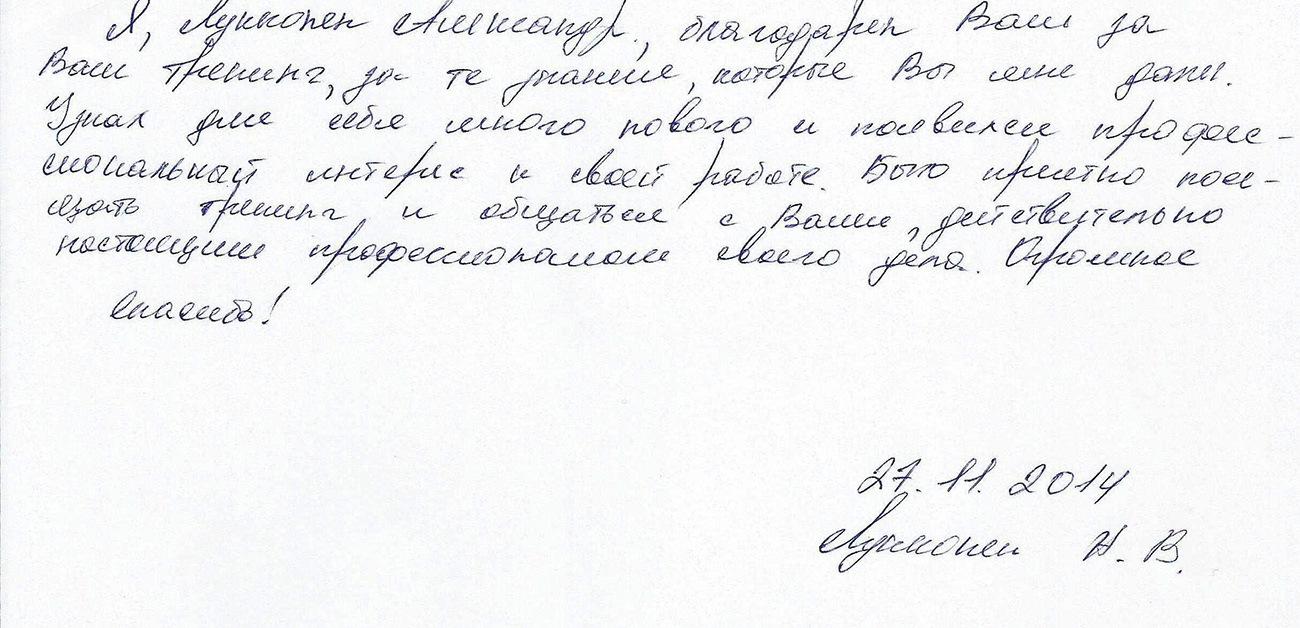 Я, Лукконен Александр, благодарен Вам за
Ваш тренинг, за те знания, которые Вы мне дали.
Узнал для себя много нового и появился профес-
сиональный интерес к своей работе. Было приятно посе-
щать тренинг и общаться с Вами, действительно
настоящим профессионалом своего дела. Огромное
спасибо!
27.11.2014
Лукконен А. В.